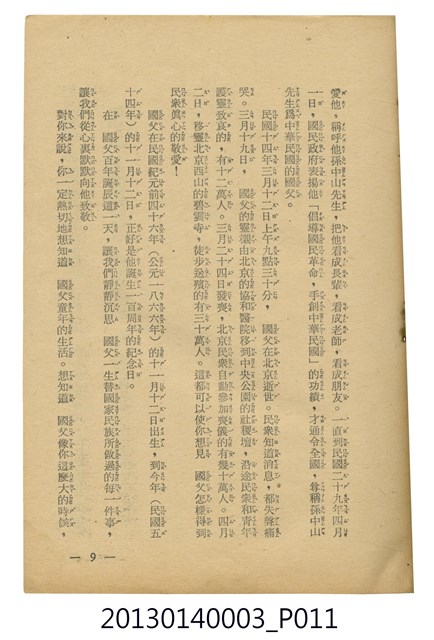 愛他，稱呼他孫中山先生，把他看成長輩，看成老師，看成朋友。一直到民國二十九年四月
一日，國民政府表揚他「倡導國民革命，手創中華民國」的功績，才通令全國，尊稱孫中山
先生為中華民國的國父。
民國十四年三月十二日上午九點三十分，　國父在北京逝世。民衆知道消息，都失聲痛
哭。三月十九日，　國父的靈櫬由北京的協和醫院移到中央公園的社稷壇，沿途民衆和青年
護靈致哀的，有十二萬人。三月二十四日發喪，北京民衆自動參加喪儀的有幾十萬人。四月
二日，移靈北京西山的碧雲寺，徒步送殯的有三十萬人。這都可以使你想見　國父怎樣得到
民衆眞心的敬愛！
國父在民國紀元前四十六年（公元一八六六年）的十一月十二日出生，到今年（民國五
十四年）的十一月十二日，正好是他誕生一百周年的紀念日。
在　國父百年誕辰這一天，讓我們靜靜沉思　國父一生替國家民族所做過的每一件事，
讓我們從心裏默默向他致敬。
對你來說，你一定熱切地想知道　國父童年的生活。想知道　國父像你這麼大的時候，
— 9 —
20130140003_P011